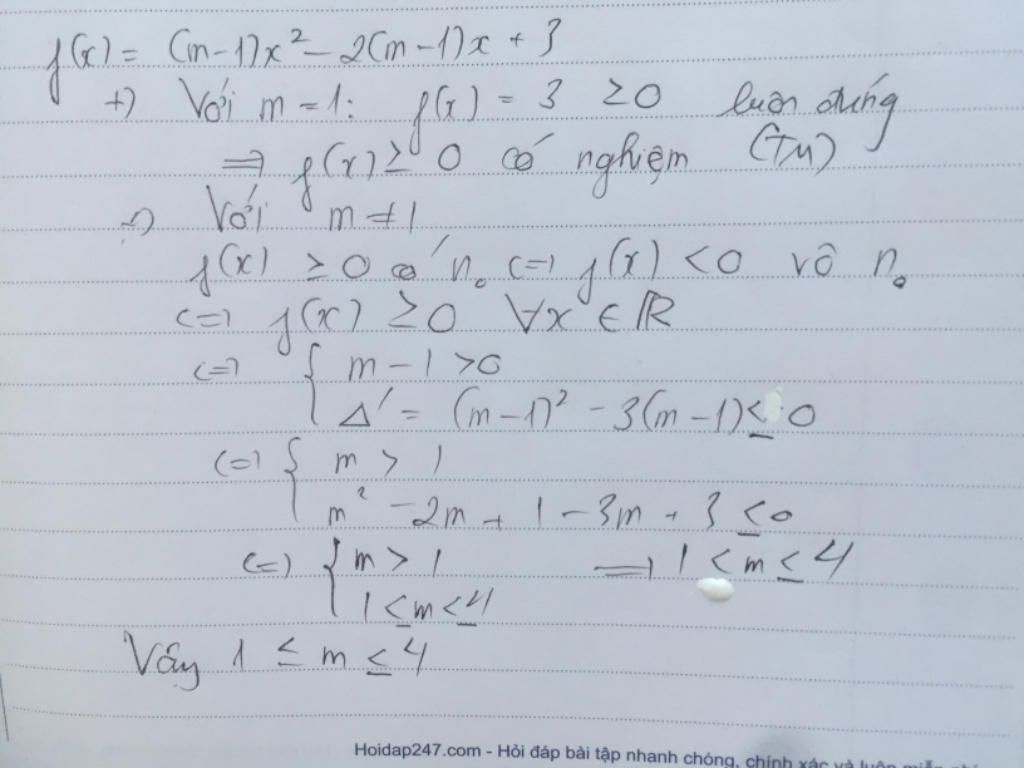 f(x) = (m-1)x² - 2(m-1)x + 3
+) Với m = 1: f(x) = 3 ≥0 luôn đúng
=> f(x) ≥ 0 có nghiệm (TM)
+) Với m ≠ 1
f(x) ≥ 0 có n₀ <=> f(x) < 0 vô n₀
<=> f(x) ≥0 ∀x ∈ ℝ
<=> { m - 1 >0
Δ' = (m-1)² - 3(m-1) ≤ 0
<=> { m > 1
m² - 2m + 1 - 3m + 3 ≤ 0
<=> { m > 1 => 1 < m ≤ 4
1 ≤ m ≤ 4
Vậy 1 ≤ m ≤ 4
Hoidap247.com - Hỏi đáp bài tập nhanh chóng, chính xác và luôn miễn phí